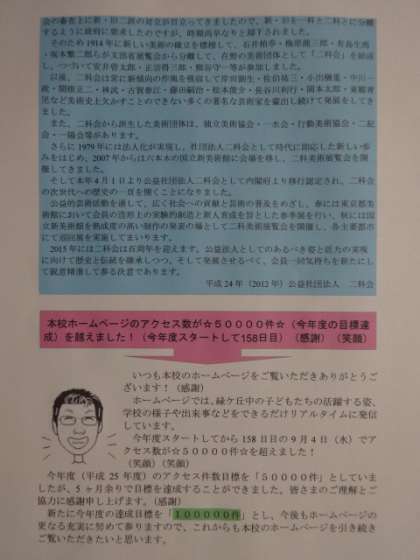 会の審査とに新・旧二派の対立が目立ってきましたので、新・旧を一科と二科とに分離
するように政府に要求したのですが、時期尚早なりと却下されました。
そのため1914年に新しい美術の確立を標榜して、石井柏亭・梅原龍三郎・有島生馬
・坂本繁二郎らが文部省展覧会から分離して、在野の美術団体として「二科会」を結成
し、つづいて安井曽太郎・正宗得三郎・熊谷守一等が参加しました。
以後、二科会は常に新傾向の作風を吸収して岸田劉生・佐伯祐三・小出楢重・中川一
政・関根正二・林武・古賀春江・藤田嗣治・松本俊介・長谷川利行・岡本太郎・東郷青
児など美術史上欠かすことのできない多くの著名な芸術家を輩出し続けて発展をしてき
ました。
また、二科会から派生した美術団体は、独立美術協会・一水会・行動美術協会・二紀
会・一陽会等があります。
さらに1979年には法人化が実現し、社団法人二科会として時代に即応した新しい歩
みをはじめ、2007年からは六本木の国立新美術館に会場を移し、二科美術展覧会を開催
してきました。
そして本年4月1日より公益社団法人二科会として内閣府より移行認定され、二科会
の次世代への歴史の一頁を開くことになりました。
公益的芸術活動を通して、広く社会への貢献と芸術の普及をめざし、春には東京都美
術館において会員の造形上の実験的創造と新人育成を目とした春季展を行い、秋には国
立新美術館を熟成度の高い制作の発表の場として二科美術展覧会を開催し、各主要都市
にて巡回展を実施してまいります。
2015年には二科会は百周年を迎えます。公益法人としてのあるべき姿と活力の実現
に向けて歴史と伝統を継承しつつ、そして発展させるべく、会員一同気持ちを新たにし
て鋭意精進して参る決意であります。
平成24年（2012年）公益社団法人　二科会
本校ホームページのアクセス数が☆50000件☆（今年度の目標達
成）を越えました！（今年度スタートして158日目）（感謝）（笑顔）
いつも本校のホームページをご覧いただきありがとうご
ざいます！（感謝）
ホームページでは、緑ケ丘中の子どもたちの活躍する姿、
学校の様子や出来事などをできるだけリアルタイムに発信
しています。
今年度スタートしてから158日目の9月4日（水）でア
クセス数が☆50000件☆を超えました！
（笑顔）（笑顔）
今年度（平成25年度）のアクセス件数目標を「50000件」としていまし
たが、5ヶ月余りで目標を達成することができました。皆さまのご理解とご
協力に感謝申し上げます。（感謝）
新たに今年度の達成目標を「100000件」とし、今後もホームページの
更なる充実に努めて参りますので、これからも本校のホームページを引き続き
ご覧いただきたいと思います。